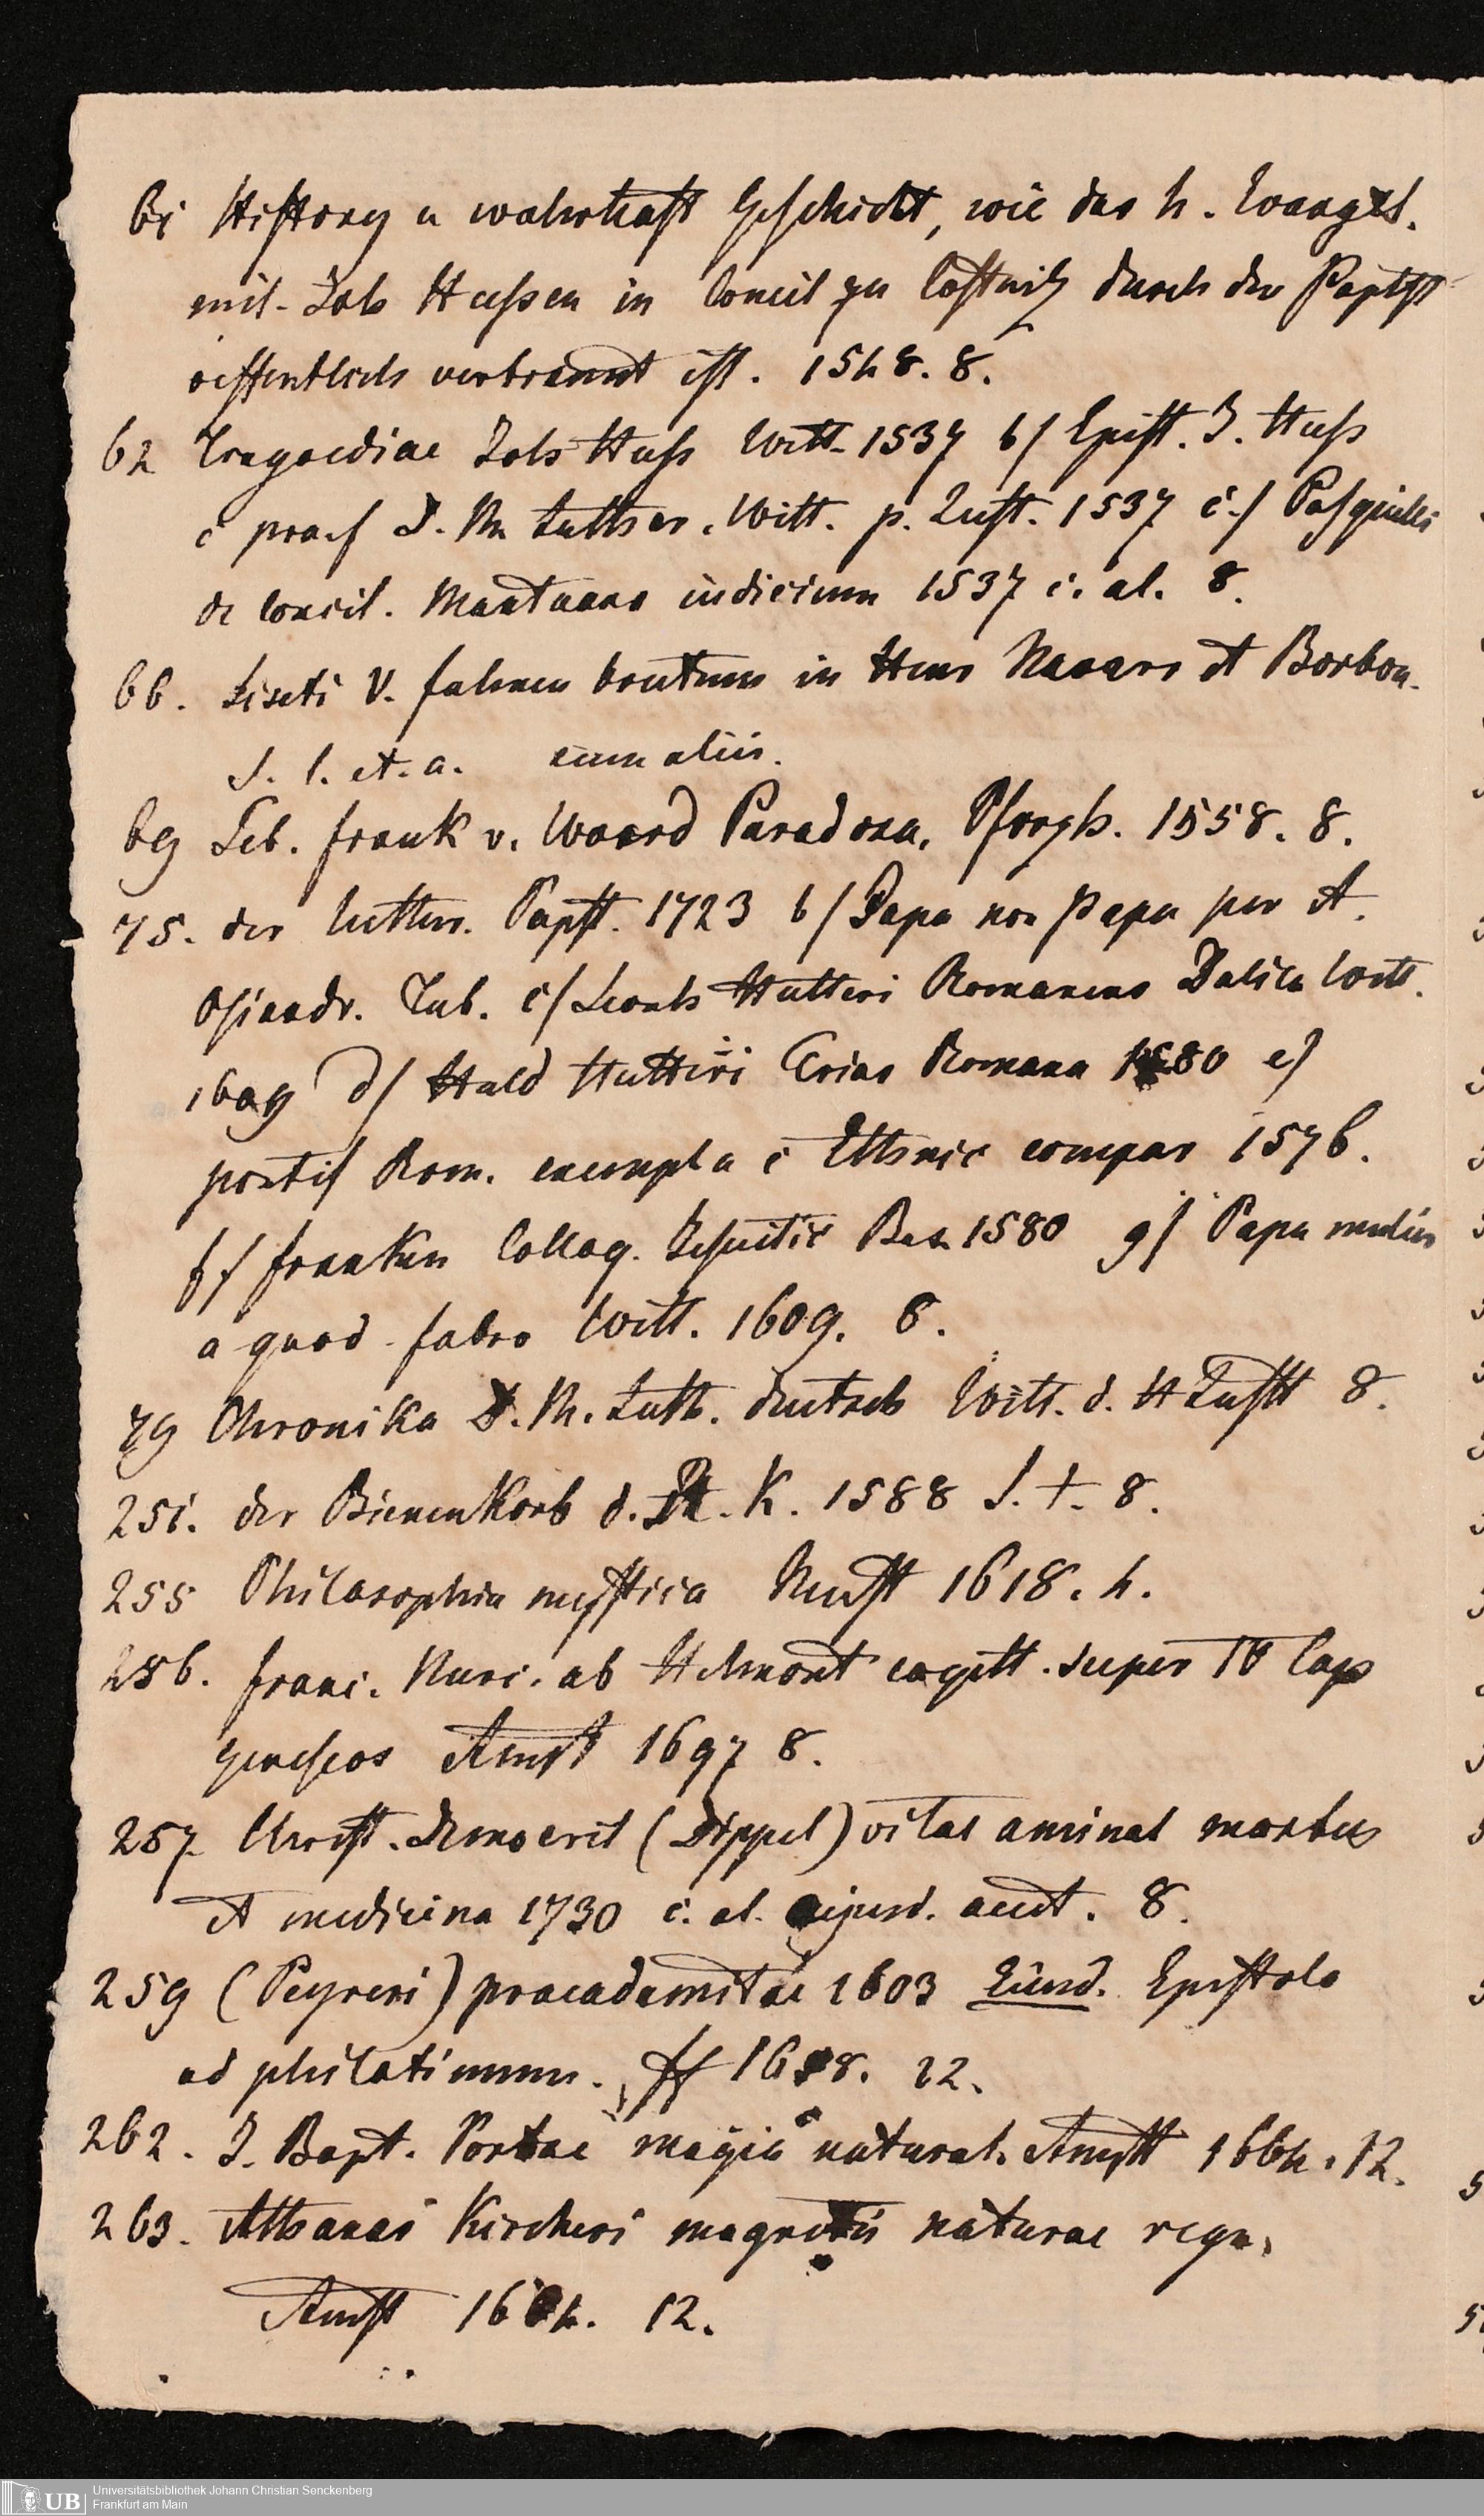 61 History u wahrhaft Geschicht, wie das h. Evangel.
mit Joh Hussen in Concil zu Costnitz durch den Papst
oeffentlich verbrannt ist. 1548. 8.
62 Tragoediae Joh Huss Witt. 1537 b/ Epist. J. Huss
c praef D. M Luther. Witt. p. Luft. 1537 c/ Pasquilli
de Concil. Mantuano iudicium 1537 c. al. 8.
66. V. fulmen brutum in Henr Navarr et Borbon.
s. l. et. a. cum aliis.
69 Seb. Frank v. Woerd Paradoxa. Pforzh. 1558. 8.
75. der luther. Papst. 1723 b/ Papa non papa per A.
Osiandr. Tub. c/ Leonh Hutteri Romanens Witt.
1609 d/ Huld Hutteri Trias Romana 1580 e/
pontif Rom. exempla c Ethnic compar 1576.
f/ Franken Colloq. Jesuitic Bas 1580 g/ Papa mulier
a quod fabro Witt. 1609. 8.
79 Chronika D. M. Luth. deutsch Witt. d. H Lufft 8.
251. der Bienenkorb d. R. K. 1588 S. t. 8.
255 Philosophia mystica Neust 1618. 4.
256. Franc. Merc. ab Helmont cogitt. super IV Cap
geneseos Amst 1697 8.
257. Christ. Democrit (Dippel) vitae animal morbus
et medicina 1730 c. al. ejusd. auct. 8.
259 (Peyreri) praeadamitae 1603 Eiusd. Epistola
ad philotimum. ff 1658. 12.
262. J. Bapt. Portae magia natural. Amstt 1664. 12.
263. Athanas Kircheri magneticū naturae regn.
Amst 164. 12.
Universitätsbibliothek Johann Christian Senckenberg
Frankfurt am Main
UB